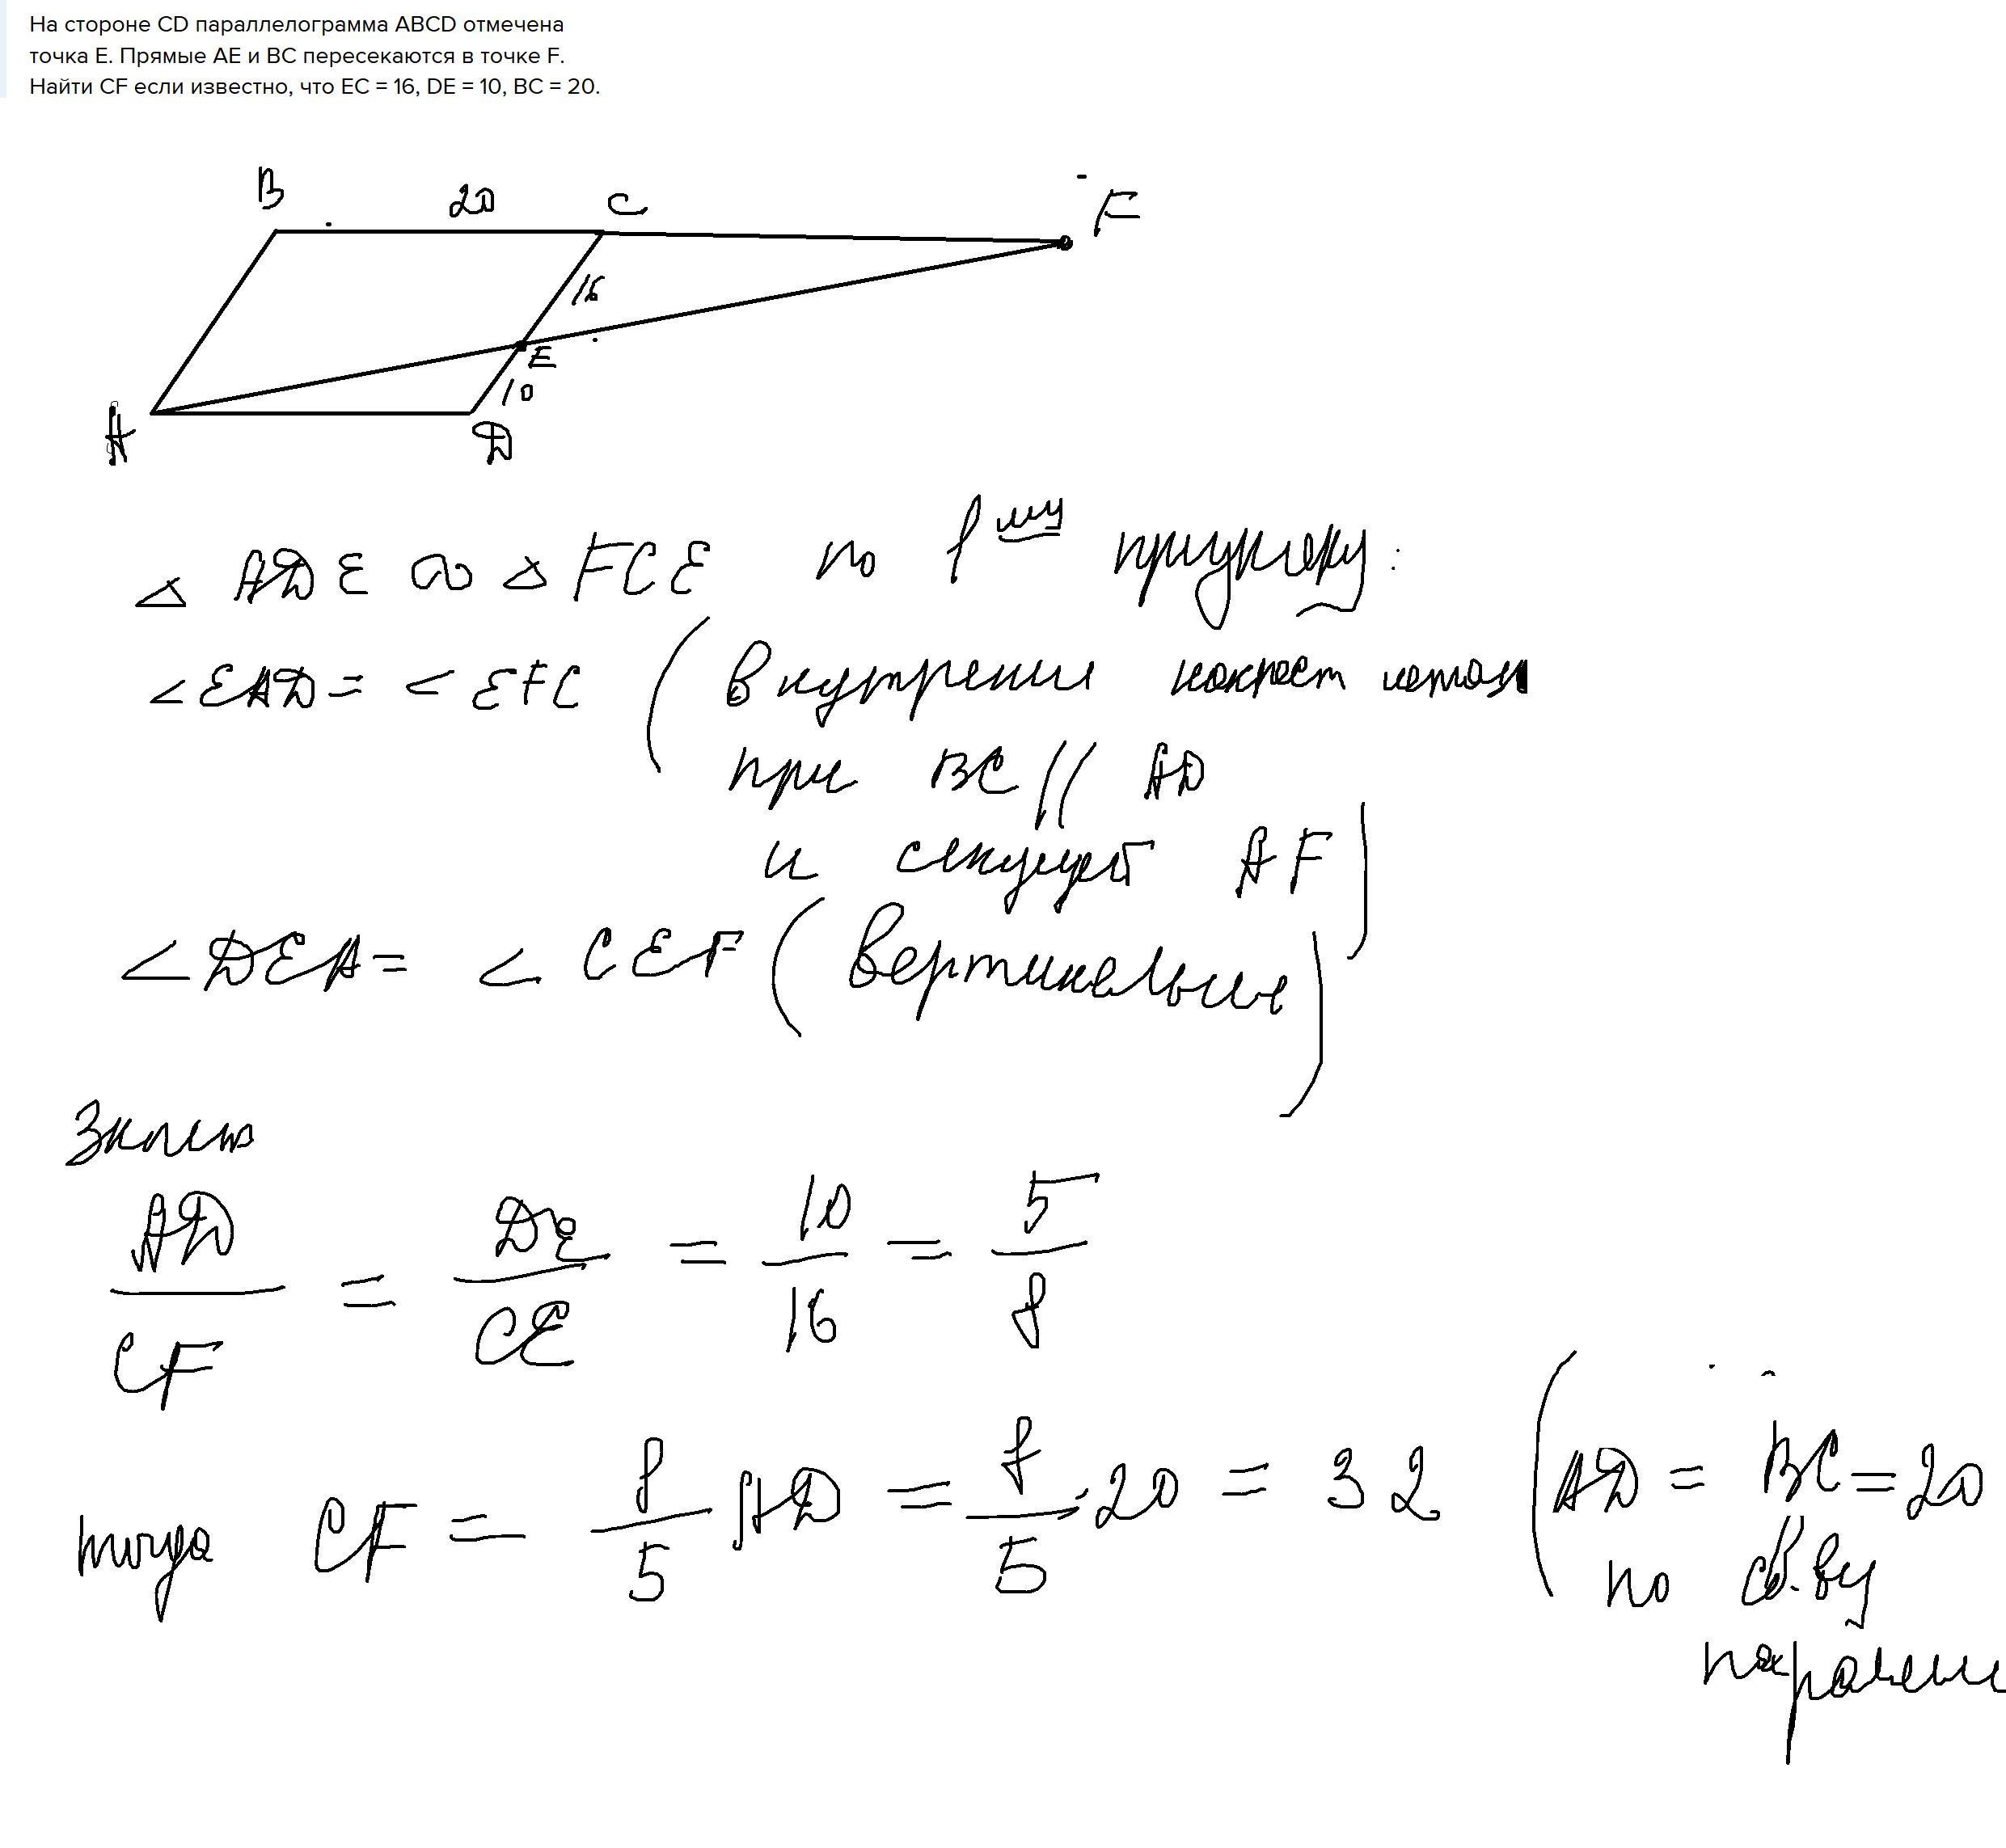 На стороне CD параллелограмма ABCD отмечена
точка E. Прямые AE и BC пересекаются в точке F.
Найти CF если известно, что EC = 16, DE = 10, BC = 20.
B 20 C F
16
E
10
A D
△ ADE ∾ △ FCE по 1му признаку:
∠EAD = ∠EFC (внутренни накрест
при BC || AD
и секущей AF)
∠DEA = ∠CEF (вертикальные)
Значит
AD/CF = DE/CE = 10/16 = 5/8
тогда CF = 8/5 AD = 8/5 · 20 = 32 (AD = BC = 20
по св-ву